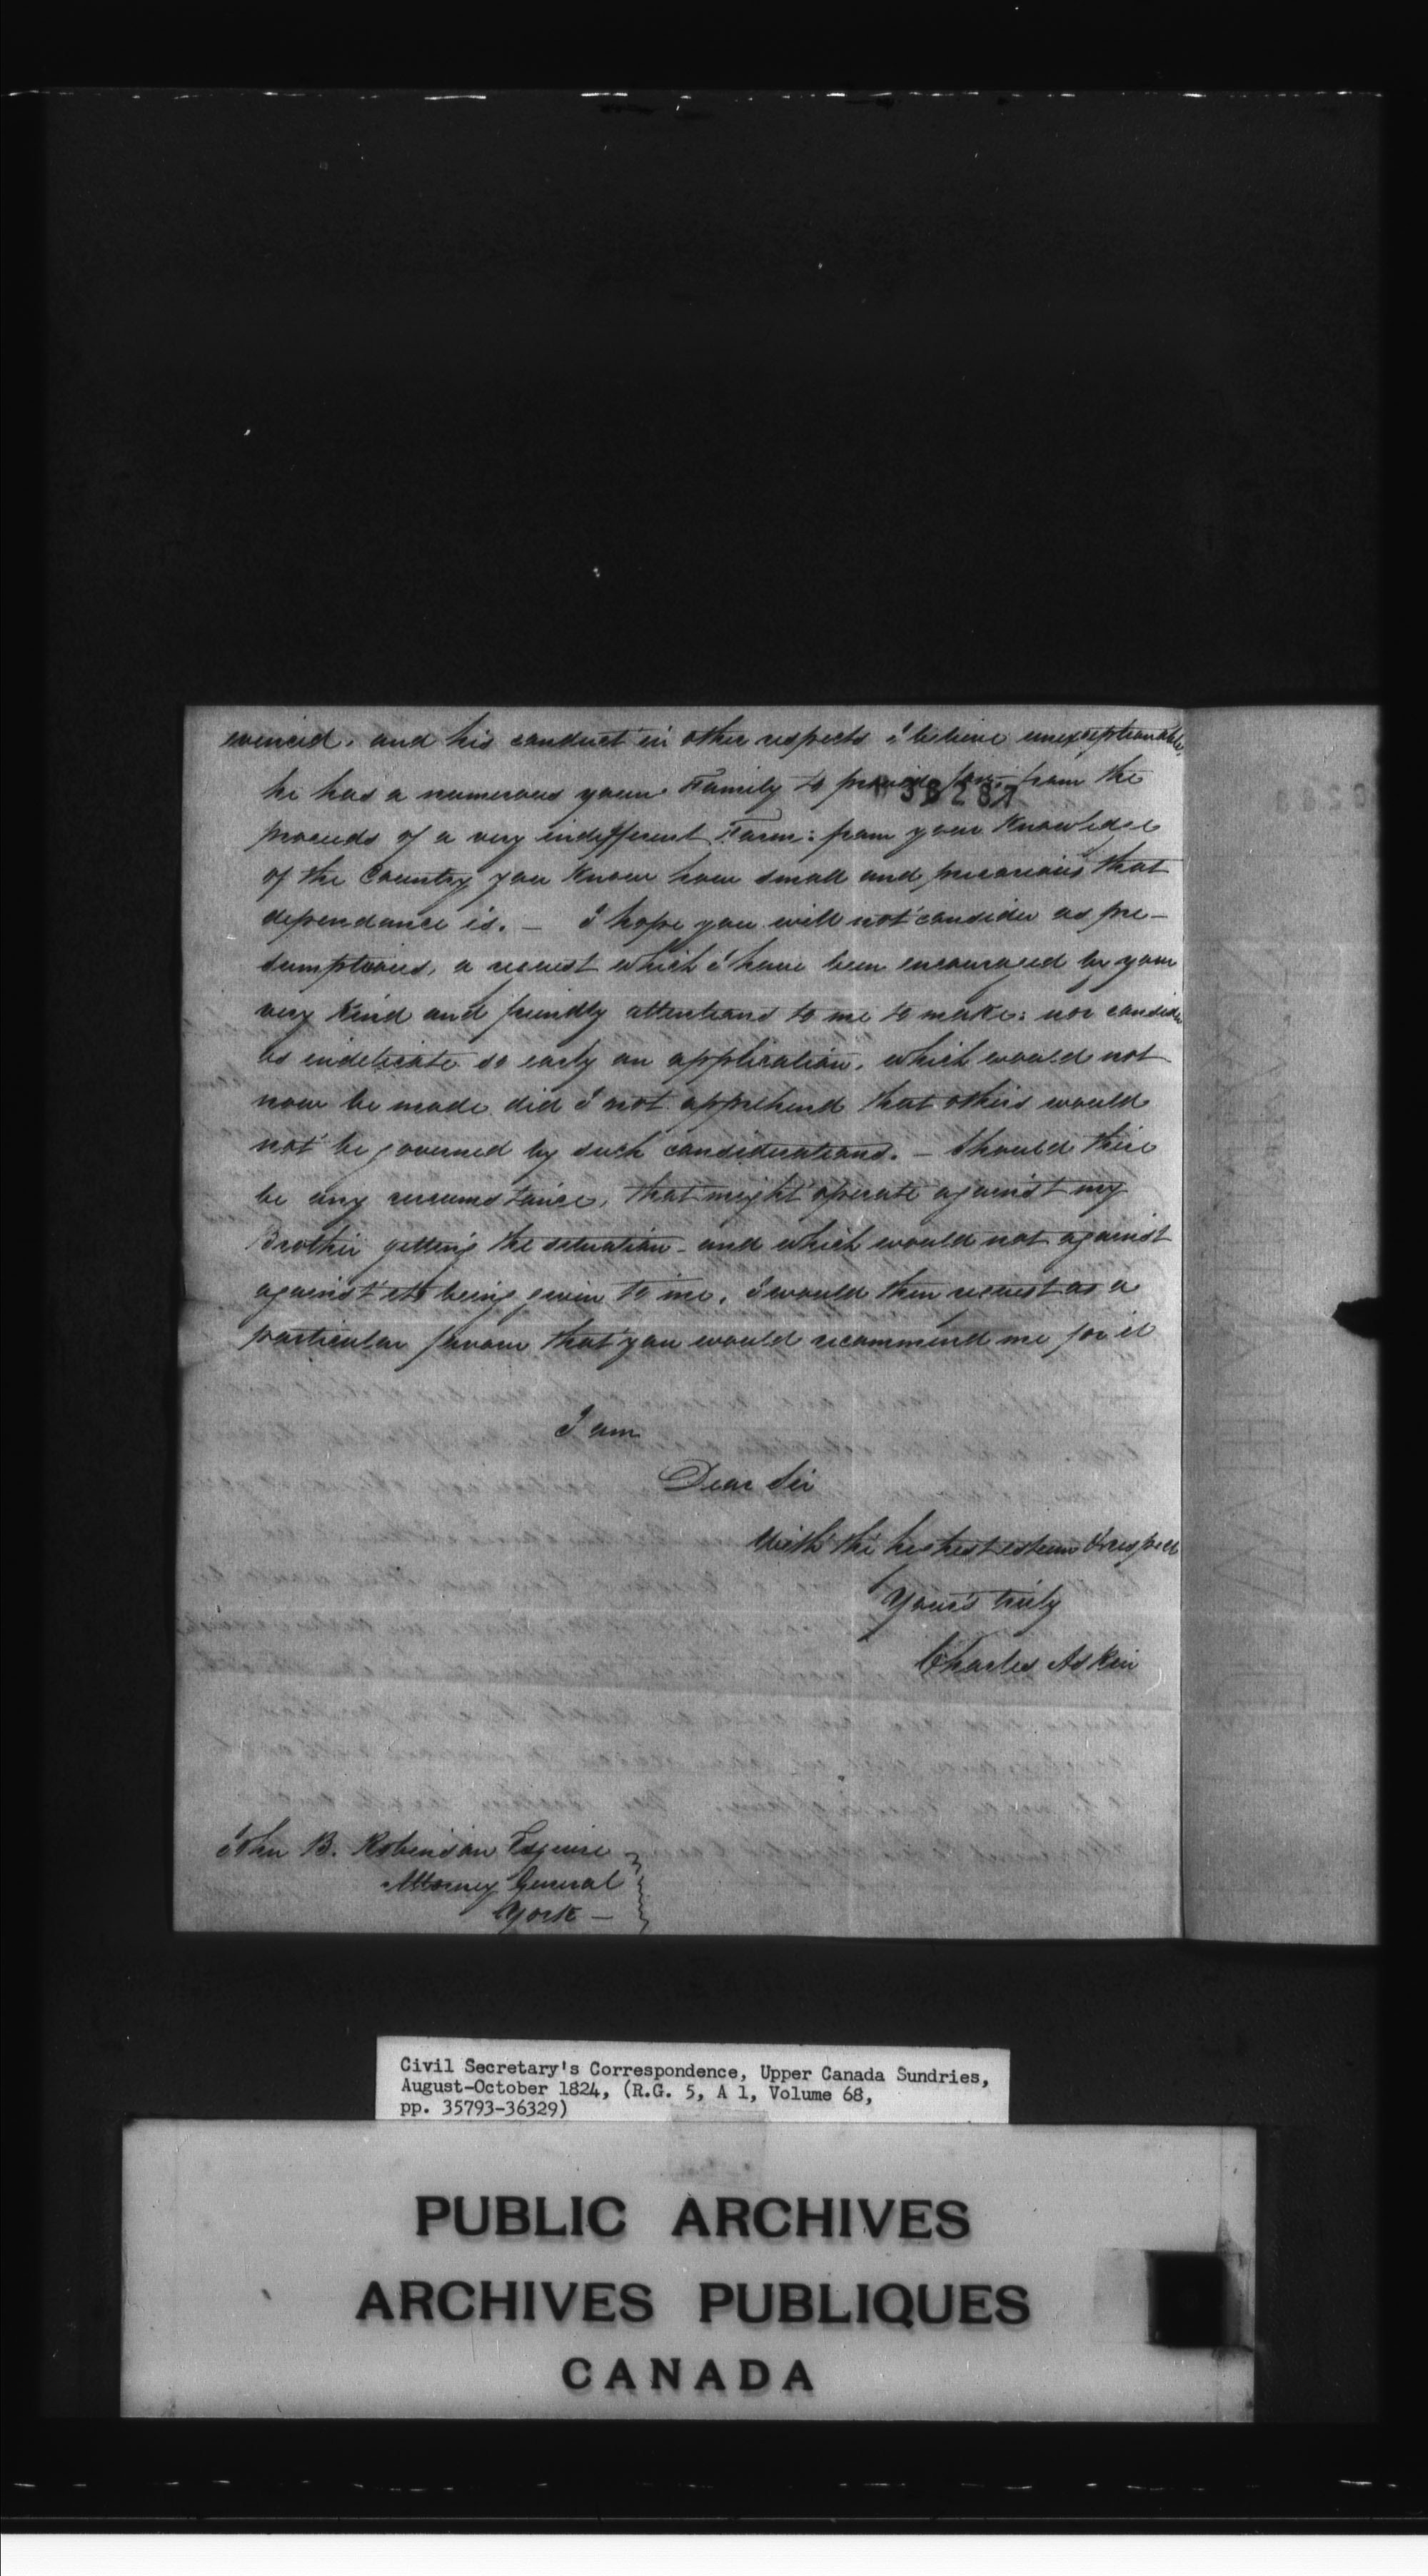 evinced. and his conduct in other respects I believe unexceptionable,
he has a numerous young Family to provide for, from the
36287
proceeds of a very indifferent Farm: from your Knowledge
of the Country you know how small and precarious that
dependance is. — I hope you will not consider as pre-
sumptuous, a request which I have been encouraged by your
very kind and friendly attentions to me to make: nor consider
as indelicate so early an application, which would not
now be made did I not apprehend that others would
not be governed by such considerations. — Should there
be any circumstance, that might operate against my
Brother getting the situation - and which would not against
against its being given to me, I would then request as a
particular favour that you would recommend me for it
I am
Dear Sir
With the highest esteem & respect
Yours truly
Charles Askin
John B. Robinson Esquire
Attorney General
York —
Civil Secretary's Correspondence, Upper Canada Sundries,
August-October 1824, (R.G. 5, A 1, Volume 68,
pp. 35793-36329)
PUBLIC ARCHIVES
ARCHIVES PUBLIQUES
CANADA